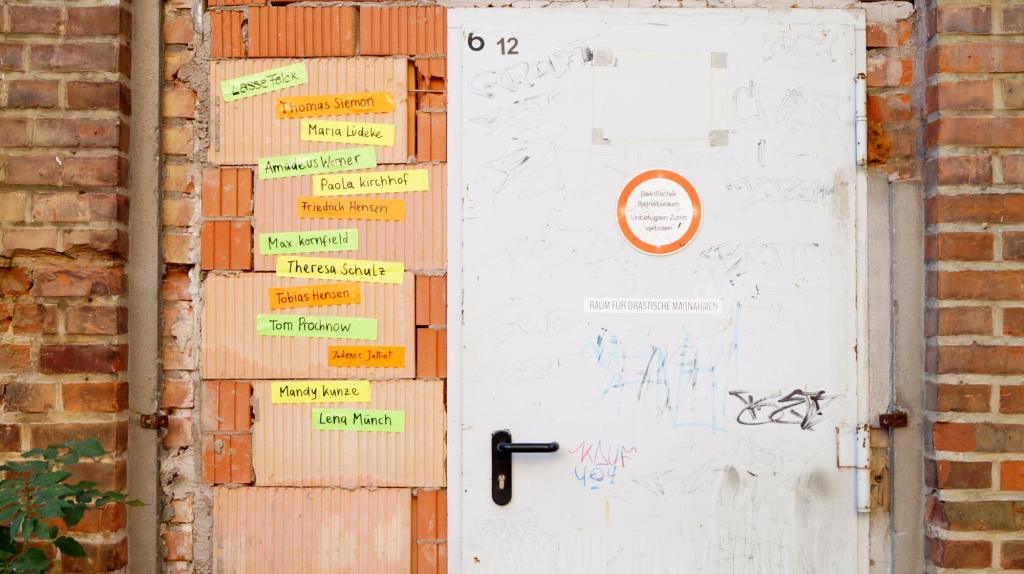 Lasse Falck
Thomas Siemon
Maria Lüdeke
Amadeus Werner
Paola Kirchhof
Friedrich Hensen
Max Kornfield
Theresa Schulz
Tobias Hensen
Tom Prochnow
Taberne Jultiot
Mandy Kunze
Lena Münch
6 12
Elektrischer
Betriebsraum
Unbefugten Zutritt
verboten
RAUM FÜR DRASTISCHE MAẞNAHMEN
KAUF
404